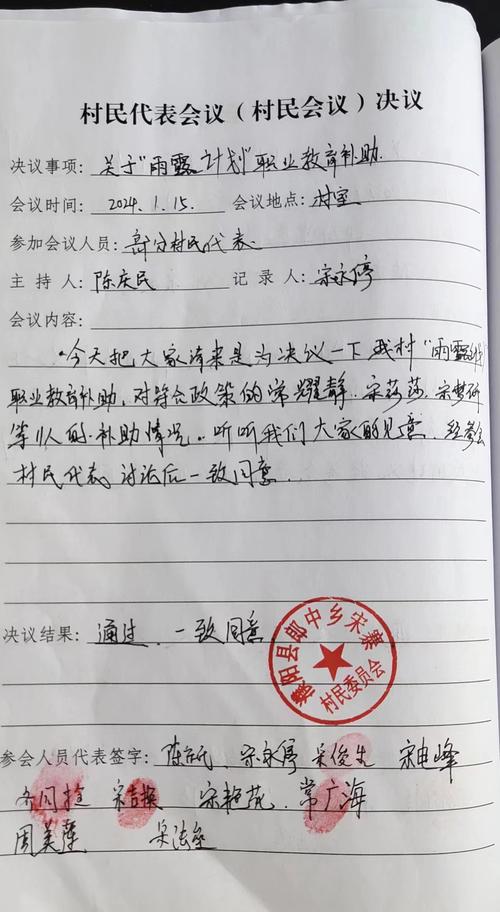 村民代表会议（村民会议）决议
决议事项：关于"雨露计划"职业教育补助.
会议时间：2024.1.15. 会议地点：村室
参加会议人员：部分村民代表
主 持 人：陈庆民 记 录 人：宋永停
会议内容：
今天把大家请来是为决议一下我村"雨露计划
职业教育补助，对符合政策的常耀静、宋莎莎、宋梦
等 人的补助情况。听听我们大家的见意，经参会
村民代表讨论后一致同意.
决议结果：通过，一致同意
濮阳县郎中乡宋寨
村民委员会
参会人员代表签字：陈庆民、宋永停 吴俊生 宋电峰
宋吉换 宋艳花、常广海
周美莲 宋法